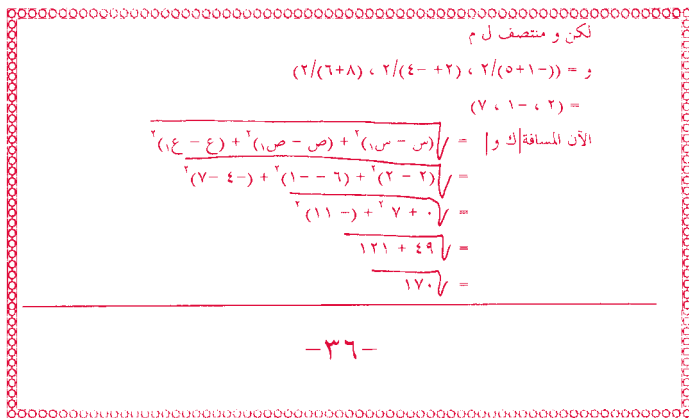 لكن و منتصف ل م
و = ((-١+٥)/٢ ، (٢+ -٤)/٢ ، (٨+٦)/٢)
= (٢ ، -١ ، ٧)
الآن المسافة |ك و| = √(س - س١)٢ + (ص - ص١)٢ + (ع - ع١)٢
= √(٢ - ٢)٢ + (٦ - -١)٢ + (-٤ -٧)٢
= √٠ + ٧ ٢ + (- ١١)٢
= √٤٩ + ١٢١
= √١٧٠
-٣٦-